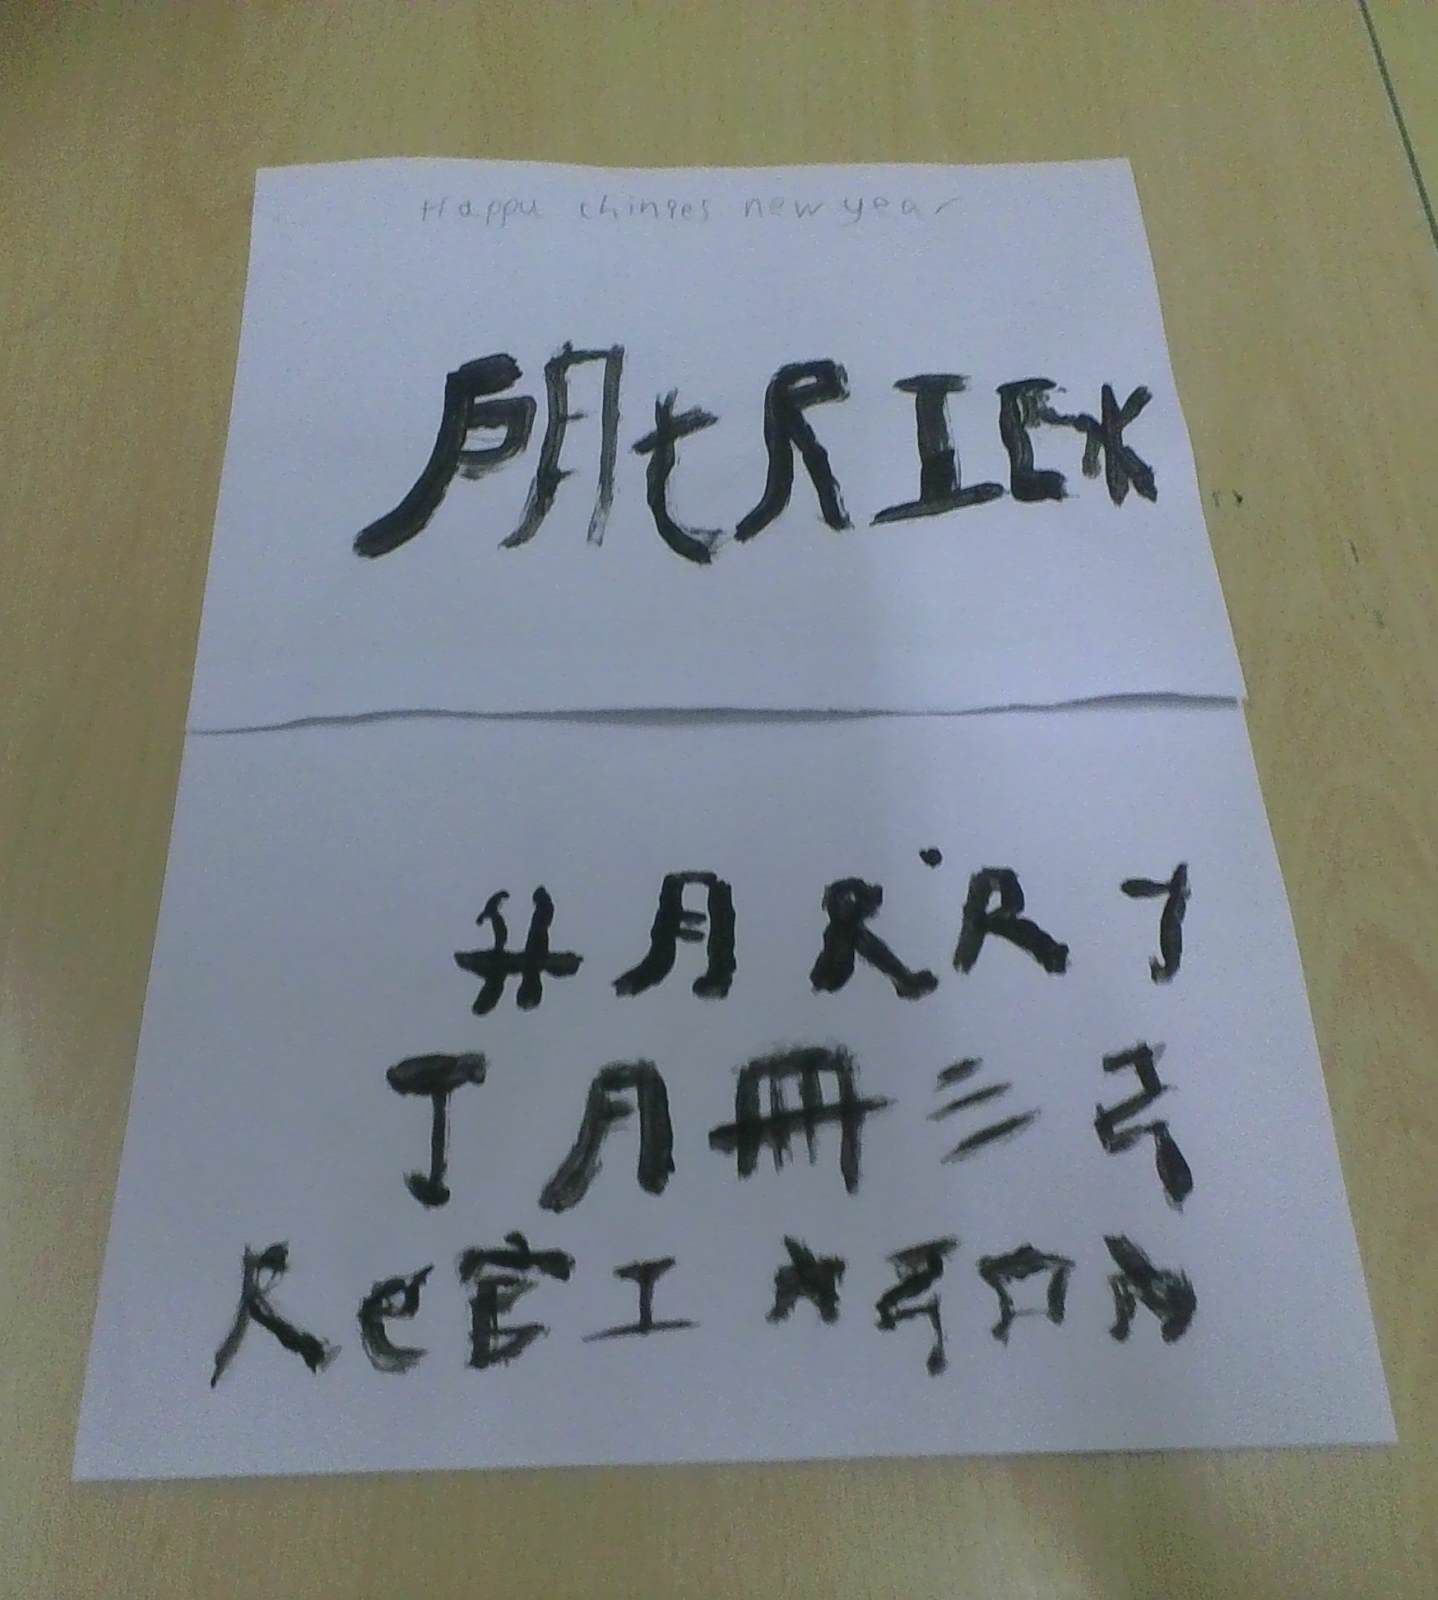 Happy chines new year
PAtRICK
HARRY
JAMES
ReEINSON